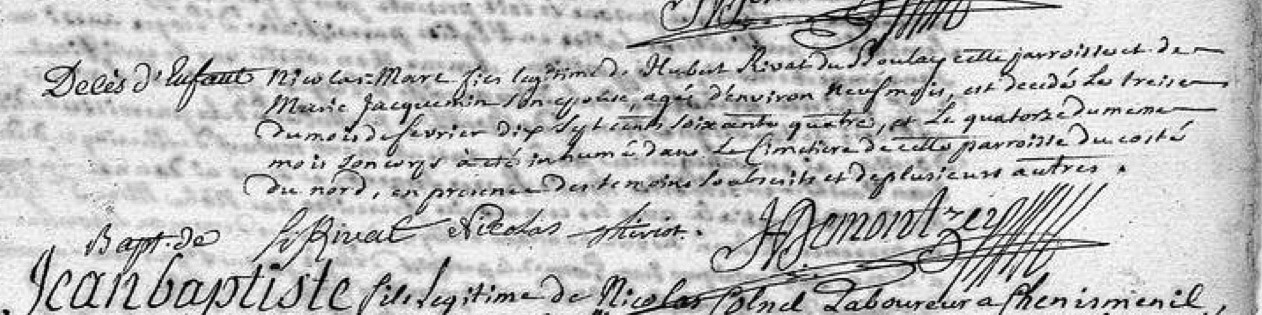 Decès d'Enfant Nicolas-Marc fils legitime de Hubert Rivat du Boulay cette parroisse et de
Marie Jacquemin son epouse, agé d'environ neuf mois, est decedé le treise
du mois de fevrier dix sept cents soixante quatre, et le quatorze du meme
mois son corps à été inhumé dans le Cimetiere de cette parroisse du costé
du nord, en presence des temoins soubscrits et de plusieurs autres.
Bapt. de Rivat Nicolas Demont
Jean baptiste fils Legitime de Nicolas Colnel Laboureur a Chenismenil,